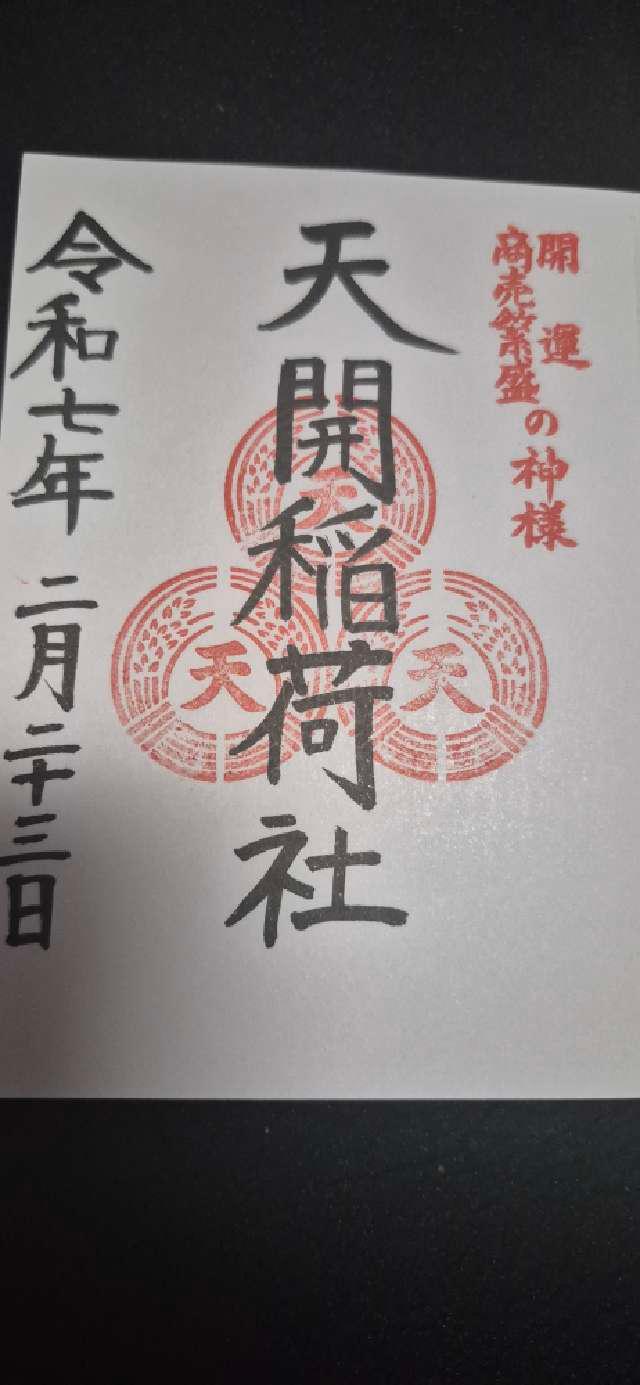 開運
商売繁盛
の神様
天開稲荷社
天
天
天
令和七年二月二十三日